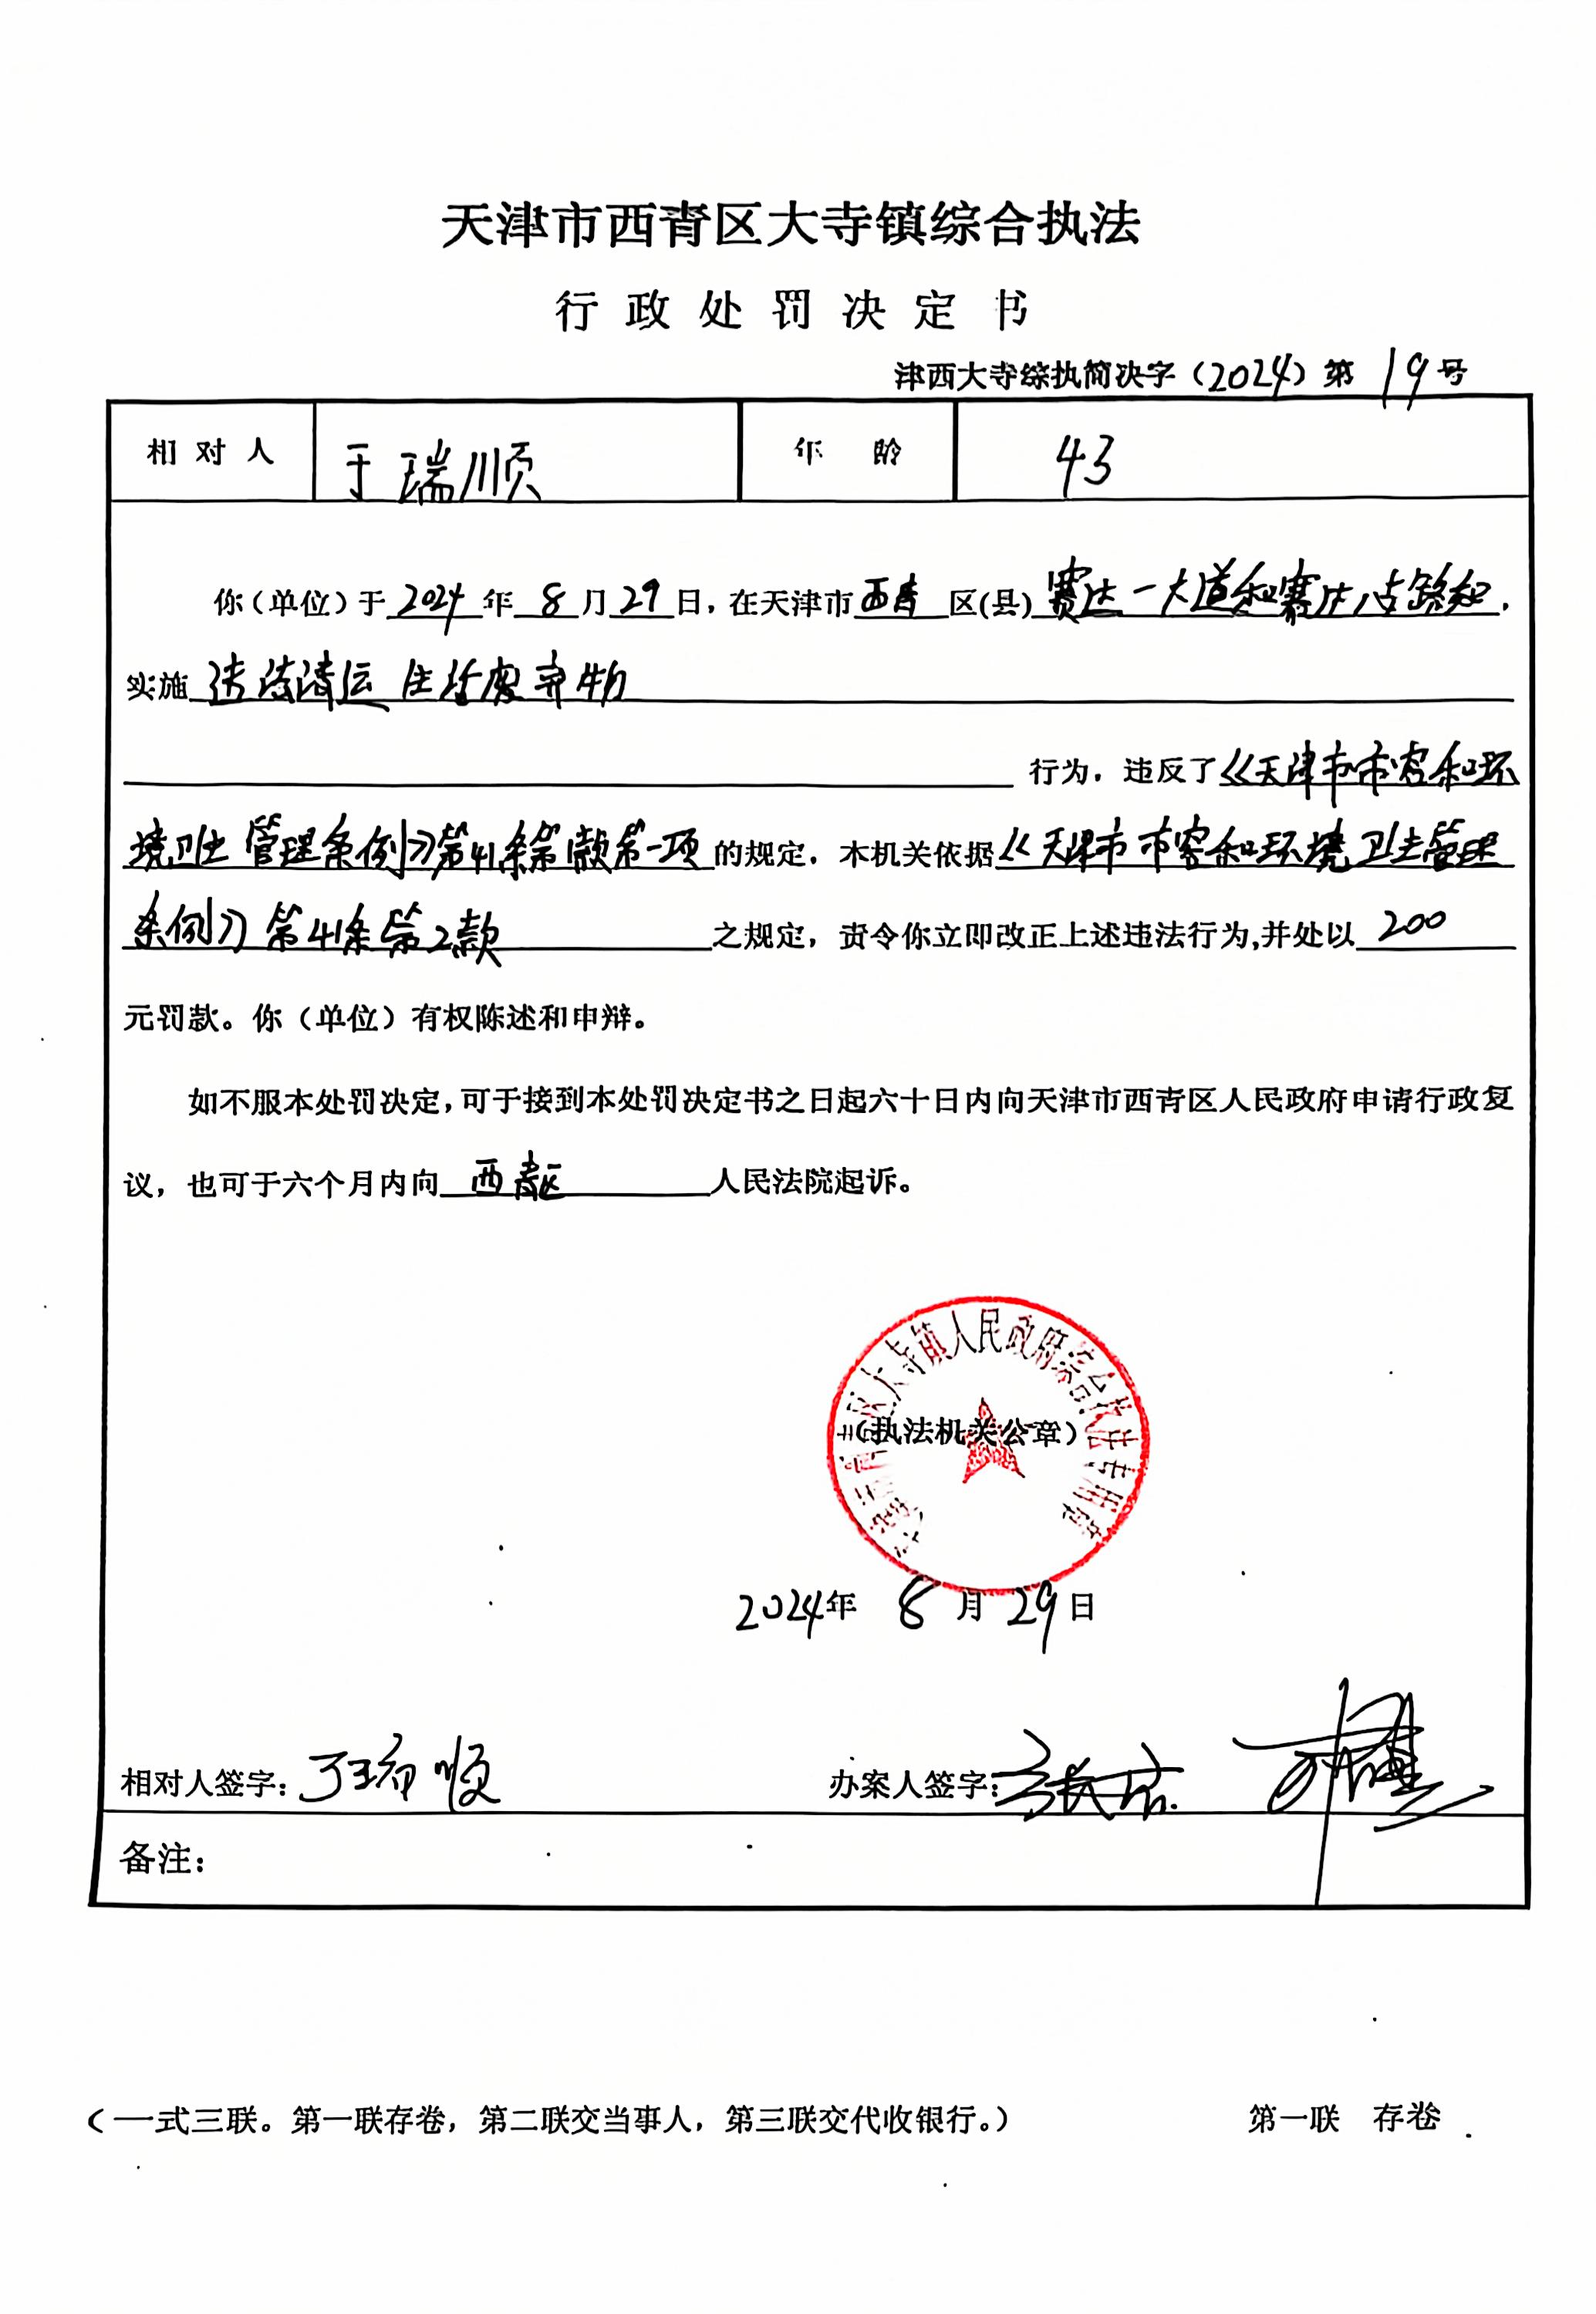 天津市西青区大寺镇综合执法
行政处罚决定书
津西大寺综执简决字（2024）第 19 号
相对人 于瑞顺 年龄 43
你（单位）于 2024 年 8 月 29 日，在天津市 西青 区(县) 赛达一大道和赛达八支路和，
实施 清运 生活废弃物
行为，违反了《天津市市容和环
境卫生管理条例》第41条第1款第一项 的规定，本机关依据《天津市市容和环境卫生管理
条例》第41条第2款 之规定，责令你立即改正上述违法行为,并处以 200
元罚款。你（单位）有权陈述和申辩。
如不服本处罚决定,可于接到本处罚决定书之日起六十日内向天津市西青区人民政府申请行政复
议，也可于六个月内向 西青区 人民法院起诉。
天津市西青区大寺镇人民政府综合执法专用章
（执法机关公章）
2024年 8 月 29 日
相对人签字：于瑞顺 办案人签字：
备注：
（一式三联。第一联存卷，第二联交当事人，第三联交代收银行。） 第一联 存卷